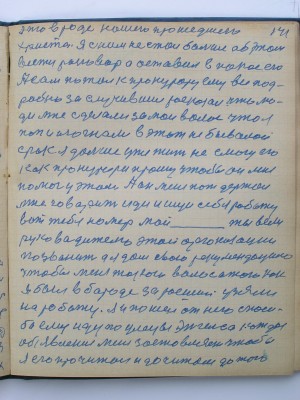 это в роде нашего прошедшего 171
Христа. Я с ним не стал больше об этом
вести разговор а оставил в покое его
А сам пошол к прокурору ему все под-
робно за случившие рассказал что лю-
ди мне сделали за мои волос что я
поп и согнали в этот не бывалой
срак я дольше уже жить не смогу его
как прокурора прошу чтобы он мне
помог у этом. Он меня поддержал
мне говорит иди и ищи себе работу
вот тебе номер мой ты если
руководитель этой организации
позвонит я дам свою рекомендацию
чтобы меня такого волосатого как
я был в бароде заросший взяли
на работу. Я и пошел от него спаси-
бо ему иду по улице Энгельса каждое
объявление меня заставляет чтобы
я его прочитал и дочитал до того